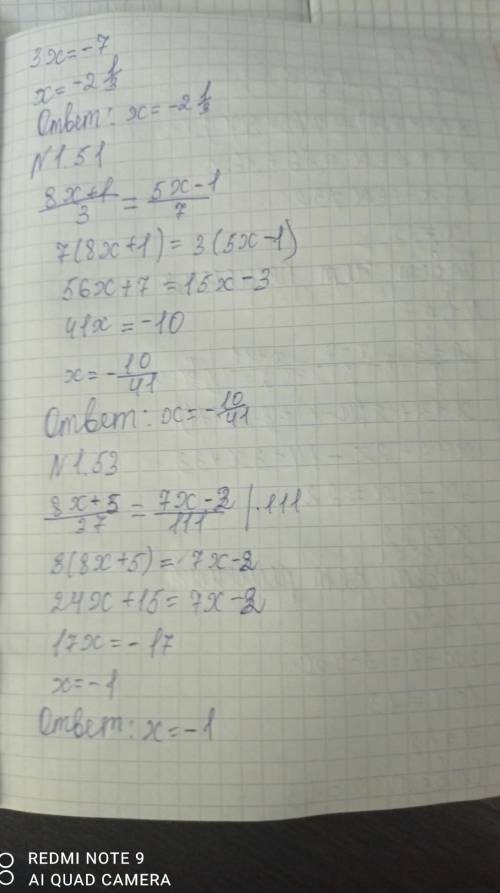 3x=-7
x=-2 1/3
Ответ: x=-2 1/3
N1.51
8x+1/3 = 5x-1/7
7(8x+1)=3(5x-1)
56x+7=15x-3
41x=-10
x=-10/41
Ответ: x=-10/41
N1.53
8x+5/37 = 7x-2/111 |·111
3(8x+5)=7x-2
24x+15=7x-2
17x=-17
x=-1
Ответ: x=-1
REDMI NOTE 9
AI QUAD CAMERA